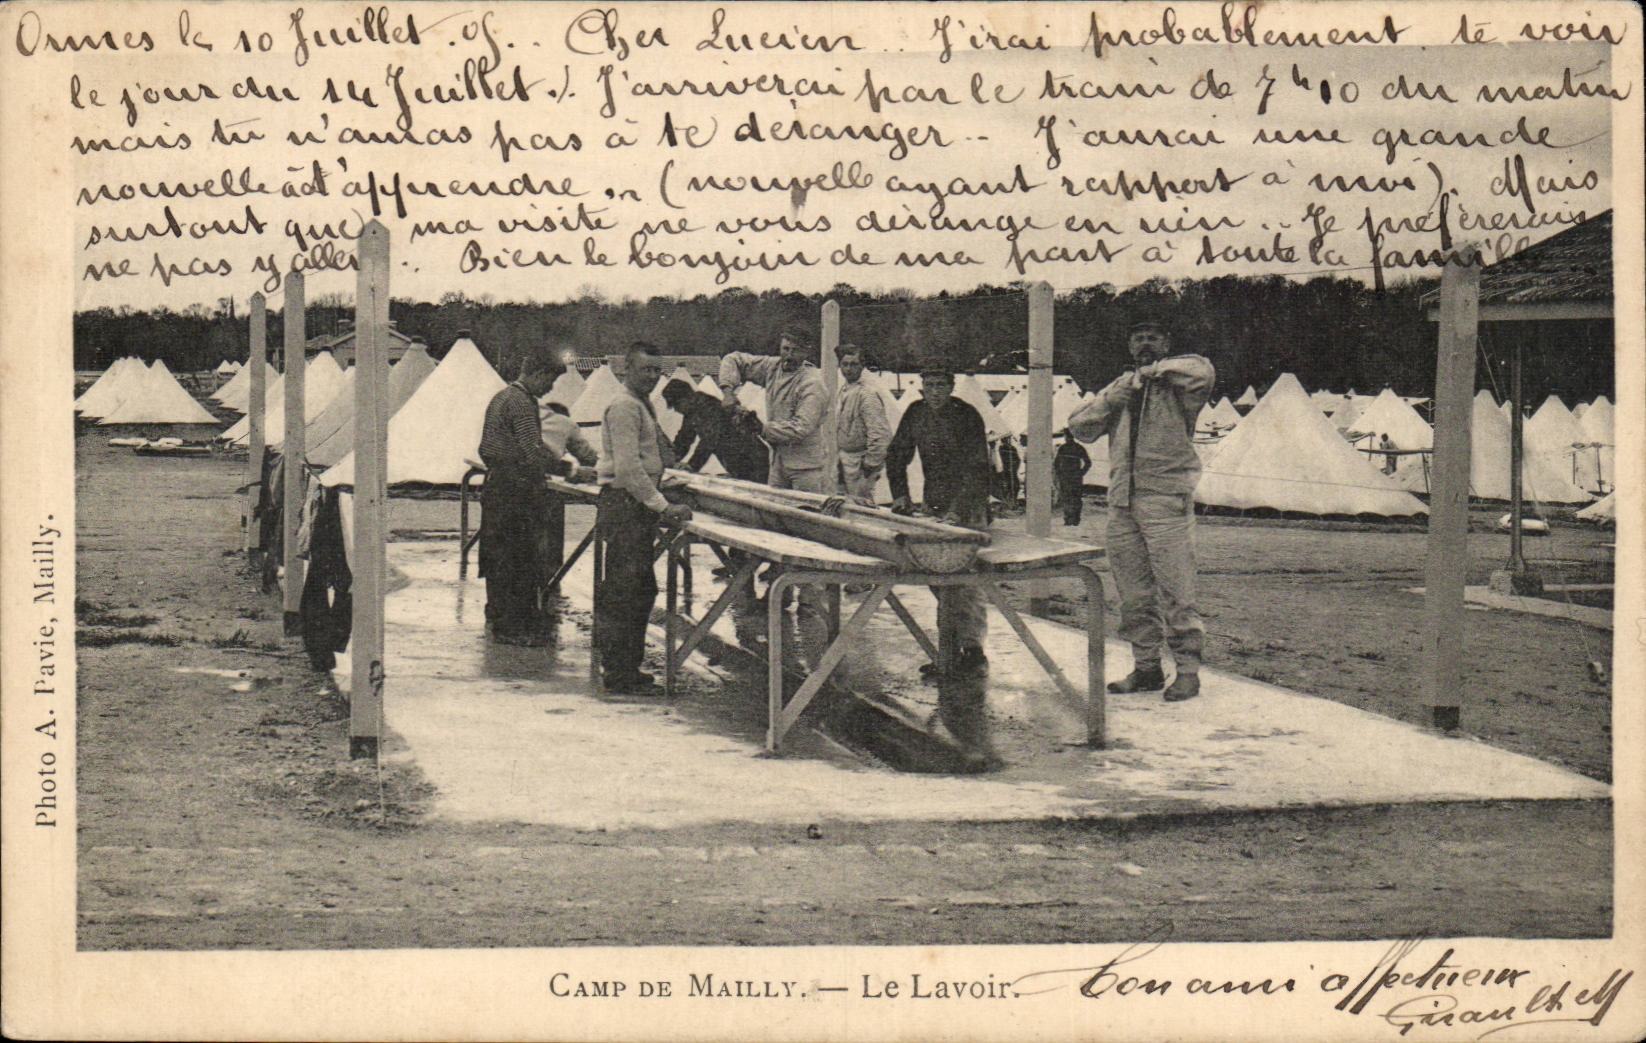 Ormes le 10 Juillet .05. Cher Lucien .. J'irai probablement te voir
le jour du 14 Juillet.). J'arriverai par le train de 7h10 du matin
mais tu n'auras pas à te déranger .. J'aurai une grande
nouvelle à t'apprendre .. (nouvelle ayant rapport à moi). Mais
surtout que ma visite ne vous dérange en rien .. Je préfèrerais
ne pas y aller .. Bien le bonjour de ma part à toute la famille
Photo A. Pavie, Mailly.
CAMP DE MAILLY. — Le Lavoir.
Ton ami affectueux
Girault M